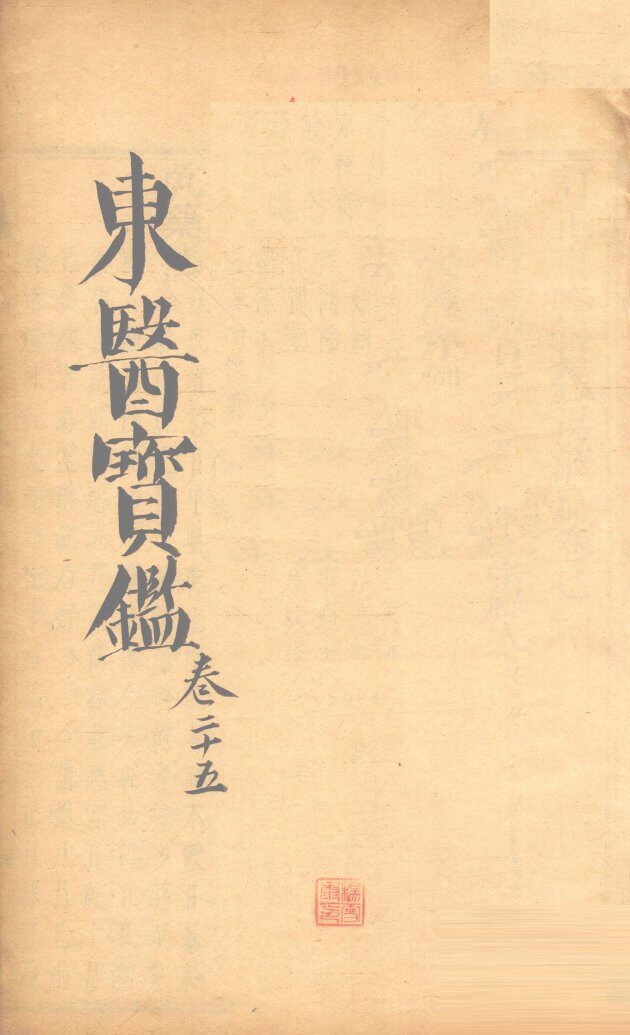 東醫寳鑑
卷二十五